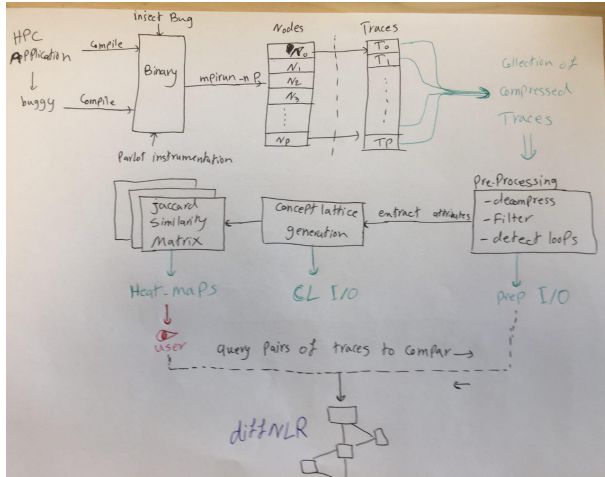 insect Bug
HPC
Application
Compile
buggy
Compile
Binary
mpirun_n P
Parlot instrumentation
Nodes
N0
N1
N2
N3
NP
Traces
T0
T1
TP
Collection of
Compressed
Traces
Pre-Processing
- decompress
- Filter
- detect loops
extract attributes
Concept lattice
generation
Jaccard
Similarity
Matrix
Heat-maps
CL I/O
prep I/O
user
query pairs of traces to compar
diffNLR